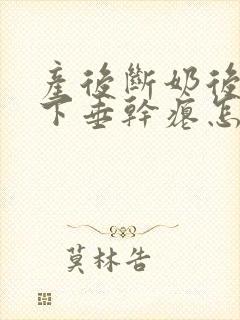 產後斷奶後
下垂幹癟怎
莫林告